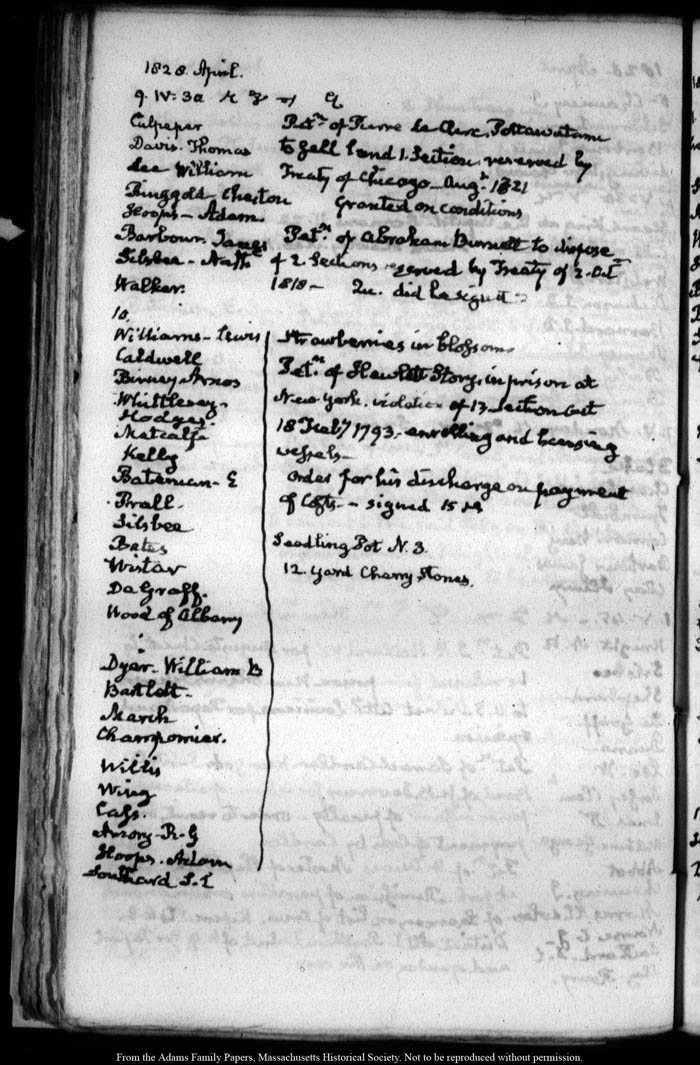 1828. April.
9. IV: 30
Culpeper
Petn. of Pierre le Clerc, Pottawatamie
Davis. Thomas
to sell land 1. Section, reserved by
Lee William
Treaty of Chicago Augt. 1821
Ringgold. Cheston
Granted on conditions
Hoops - Adam
Barbour. James
Petn. of Abraham Burnett to dispose
Silsbee - Nathl.
of 2 Sections reserved by Treaty of 2. Octr
Walker.
1818 - Qu. did he sign it?
10.
Williams - Lewis
Strawberries in blossom
Caldwell
Petn. of Hewlett Story, in prison at
Binney Amos
New-York. violation of 13 Section Act
Whittlesey.
18 Feby 1793. enrolling and licensing
Hodges.
vessels -
Metcalfe
Order for his discharge on payment
Kelly
of Costs. - signed 15
Bateman - E
Thrall.
Silsbee
Seedling Pot N. 3.
Bates
12. Yard Cherry Stones.
Wistar
De Graff.
Wood of Albany
:
Dyer. William B
Bartlett
March
Champomier.
Willis
Wing
Cass.
Amory - R. G
Hoops. Adam
Southard S. L
From the Adams Family Papers, Massachusetts Historical Society. Not to be reproduced without permission.